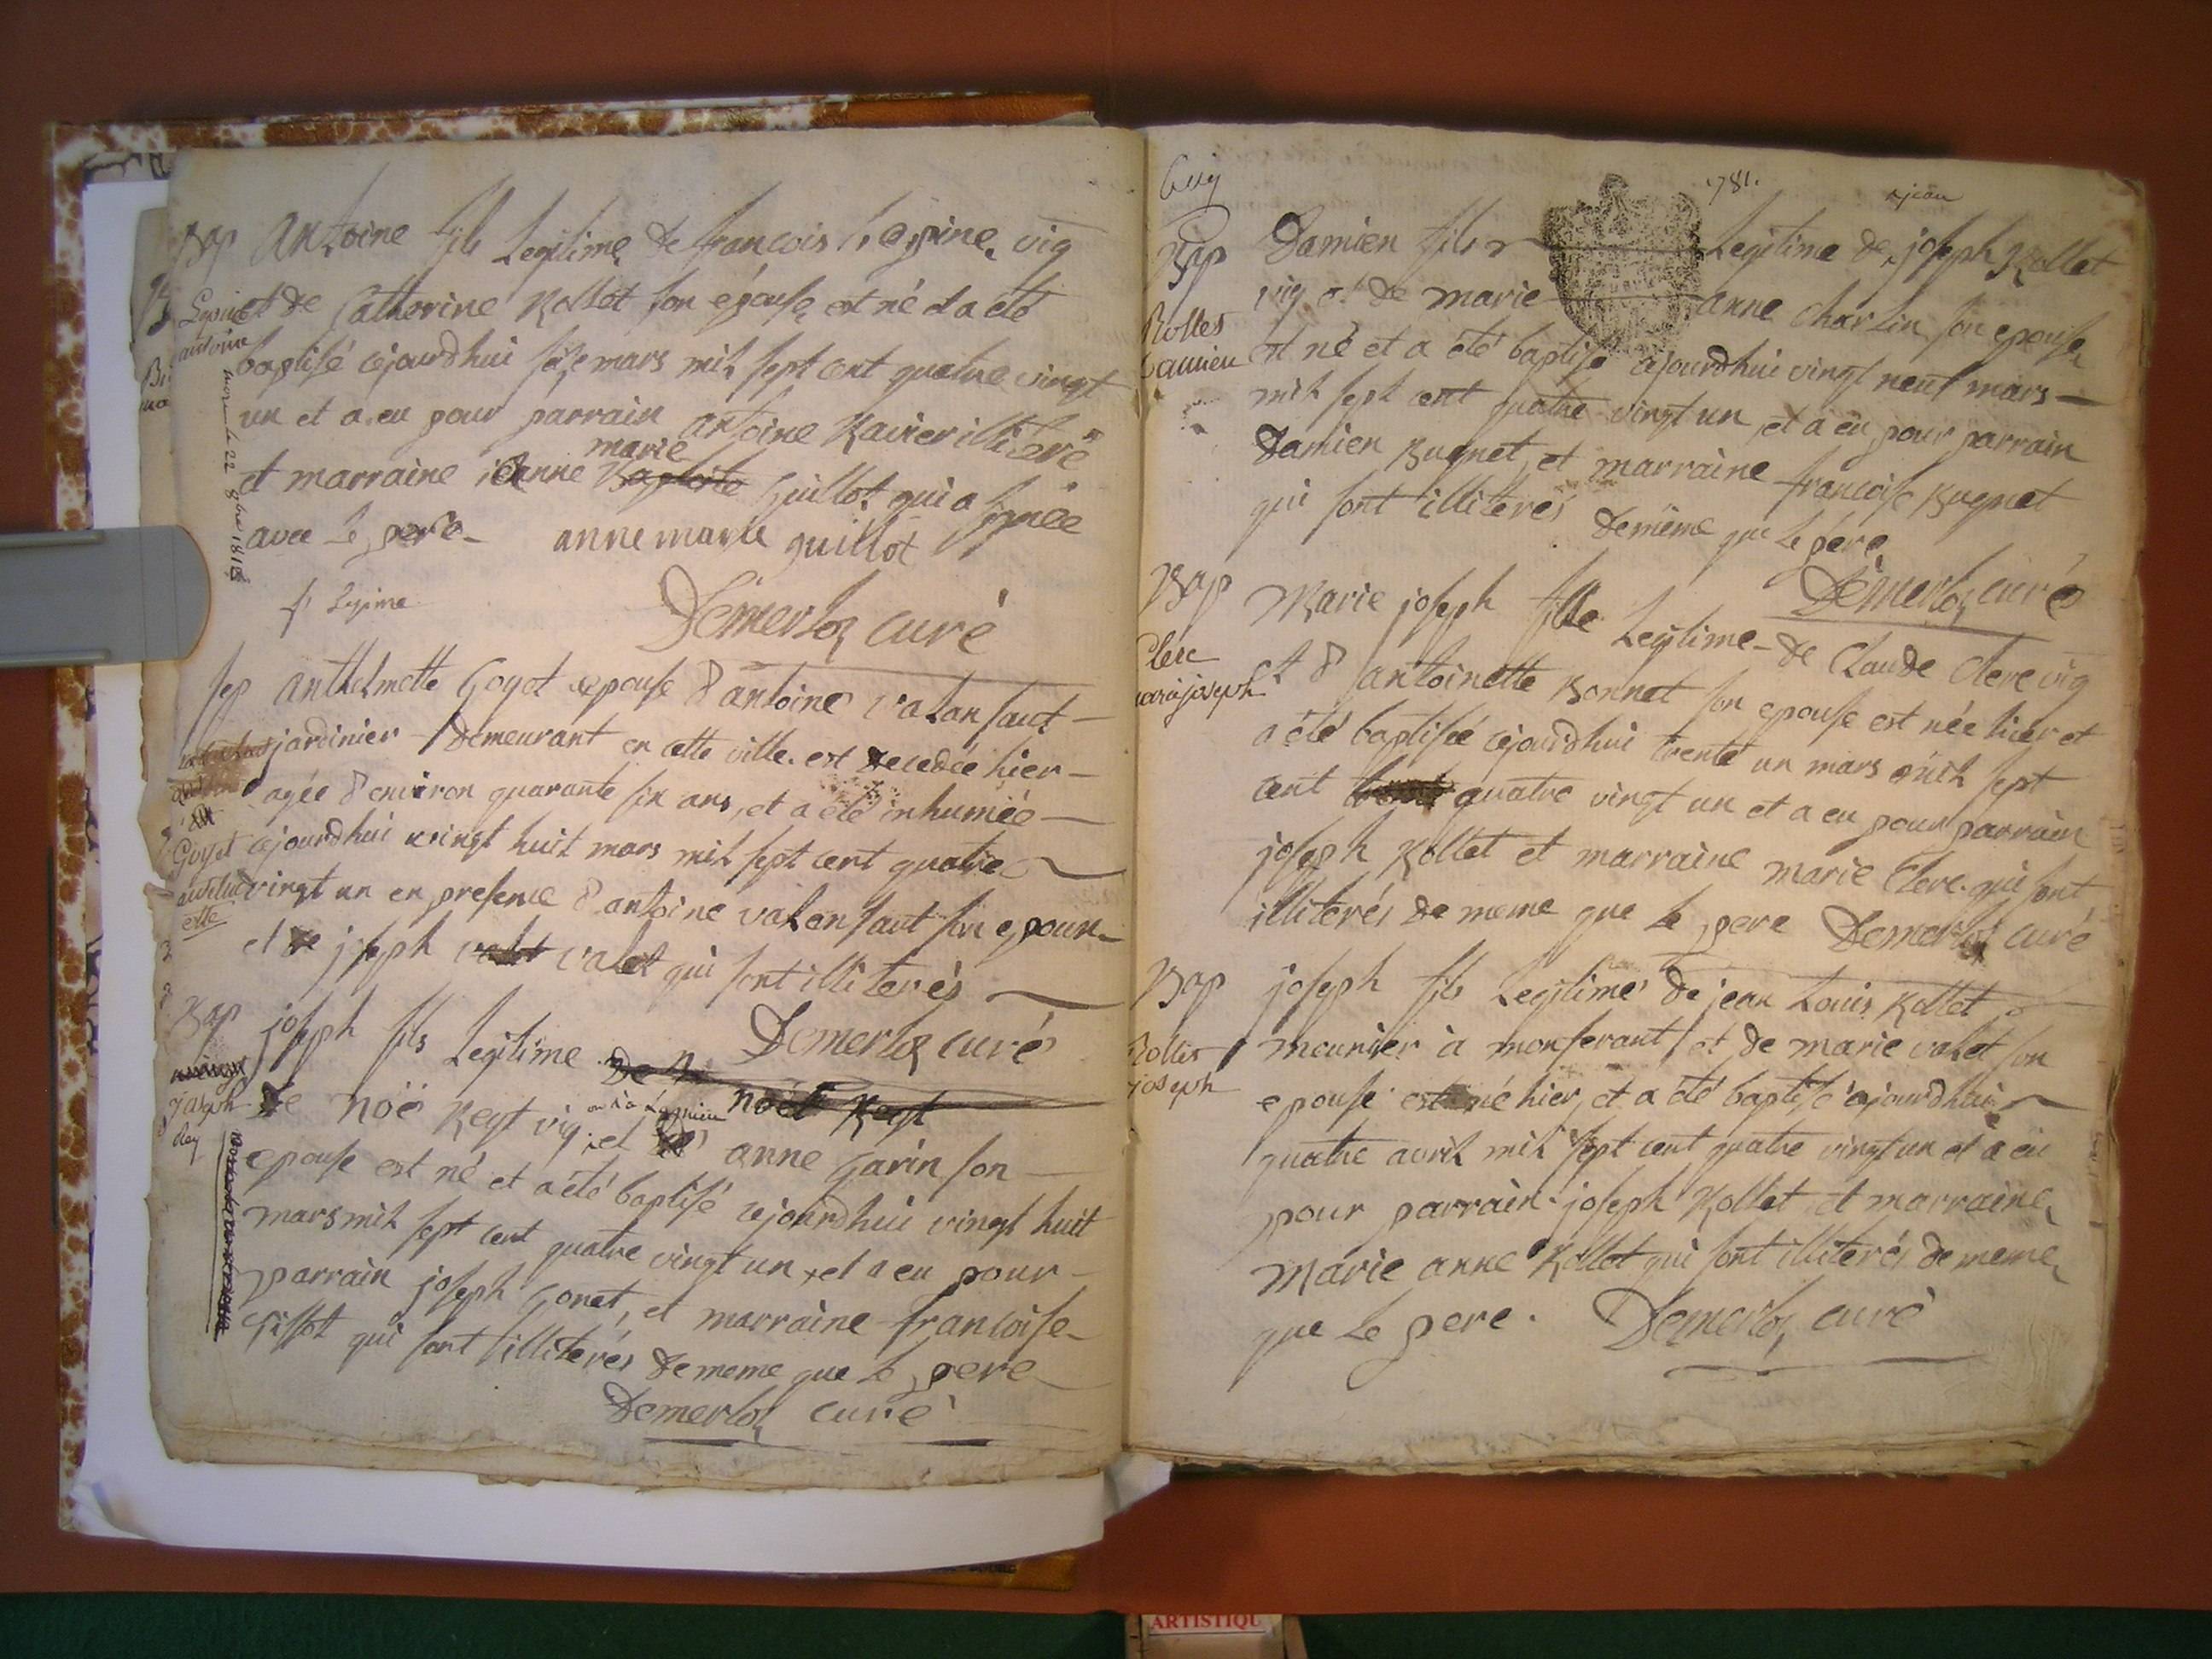 Bap Antoine fils Legitime de francois Lepine vig
Lepine antoine
et de Catherine Rollet son épouse est né et a été
baptisé cejourdhui seize mars mil sept cent quatre vingt
un et a eu pour parrain antoine Ravier illiteré
et marraine jeanne marie Guillot qui a signée
avec le pere annemarie guillot
le 22 8bre 1818
f Lepine
Demerloz curé
Sep anthelmette Goyet epouse d'antoine valansaut
jardinier demeurant en cette ville est decedée hier
agée d'environ quarante six ans, et a été inhumée
Goyet anthelmette
cejourdhui vingt huit mars mil sept cent quatre
vingt un en presence d'antoine valensaut son epoux
et de joseph valet valet qui sont illiterés
Demerloz curé
Bap joseph fils Legitime de n noël Reyt
joseph Rey
de noë Reyt vig et anne Garin son
epouse est né et a été baptisé cejourdhui vingt huit
mars mil sept cent quatre vingt un, et a eu pour
parrain joseph Gonet, et marraine francoise
Gissot qui sont illiterés de meme que le pere
Demerloz curé
1781.
jean
Bap Damien fils Legitime de joseph Rollet
Rollet Damien
vig et de marie anne Charlin son epouse
est né et a été baptisé cejourdhui vingt neuf mars
mil sept cent quatre vingt un, et a eu pour parrain
Damien Bugnet, et marraine francoise Bugnet
qui sont illiterés de même que le pére
Demerloz curé
Bap Marie joseph fille Legitime de Claude Clerc vig
Clerc marie joseph
et d'antoinette Bonnet son epouse est née hier et
a été baptisée cejourdhui trente un mars mil sept
cent quatre vingt un et a eu pour parrain
joseph Rollet et marraine marie Clerc qui sont
illiterés de meme que le pere Demerloz curé
Bap joseph fils Legitime de jean Louis Rollet
Rollet joseph
meunier à monferant et de marie valet son
epouse est né hier, et a été baptisé cejourdhui
quatre avril mil sept cent quatre vingt un et a eu
pour parrain joseph Rollet et marraine
Marie anne Rollet qui sont illiterés de meme
que le pere. Demerloz curé
ARTISTIQU